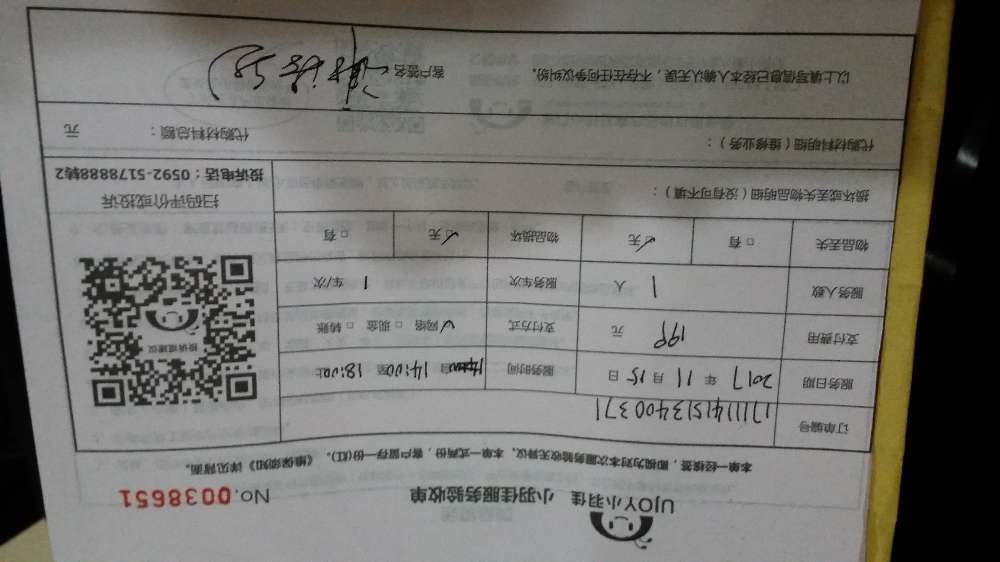 UJOY小羽佳 小羽佳服务验收单 No.0038651
本单一经核签，即视为对本次服务验收无异议，本单一式两份，客户留存一份(红)。《维保须知》详见背面。
订单编号 1711141513400371
服务日期 2017 年 11 月 15 日 服务时间 自 14:00 至 18:00止
支付费用 199 元 支付方式 ✓网络 □ 现金 □ 转账
服务人数 1 人 服务车次 1 车/次
物品丢失 □ 有 ✓无 物品损坏 ✓无 □ 有
投诉或建议
扫码评价或投诉
投诉电话：0592-5178888转2
损坏或丢失物品明细（没有可不填）：
代购材料明细（维修业务）： 代购材料总额： 元
以上填写信息已经本人确认无误，不存在任何争议纠纷。 客户签名